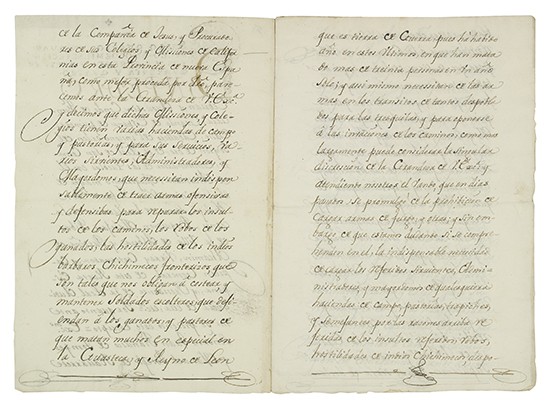 de la Compañia de Jesus, y Procurado
res de sus Colegios y Missiones de Califor
nias en esta Provincia de nueva Espa
ña, como mejor proceda por dro. pare
cemos ante la Grandeza de V. Exª.
y decimos que dichas Missiones, y Cole
gios tienen varias haciendas de campo
y pastorias, y para sus Servicios, va
rios Sirvientes, Administradores, y
Mayordomos, que necessitan indispen
sablemente de traer armas ofensivas
y defensivas para reparar los insul
tos de los caminos, los robos de los
ganados, las hostilidades de los indios
barbaros Chichimecos fronterisos que
son tales que nos obligan à costear, y
mantener Soldados escolteros que defi
endan à los ganados, y pastores de
que matan muchos en especial en
la Guasteca, y Reyno de Leon
que es tierra de Guerra pues ha habido
año en estos Ultimos, en que han mata
do mas de treinta personas en Un año
Solo, y assi mismo necessitan de las ar
mas en los transitos de tantos despobla
dos, para las requisitas, y para oponerse
à las invasiones de los caminos, como mas
largamente puede considerar la Singular
discrecion de la Grandeza de V. Exª. y
atendiendo nosotros el Vando que los dias
passados Se promulgó de la prohibicion de
Cargar armas de fuego, y otras, y Sin em
bargo de que estamos dudando Si Se compre
henden en el, la indispensable necessidad
de cargar los referidos Sirvientes, Admi
nistradores, y mayordomos de qualesquiera
haciendas de campo, pastorias, trapiches,
y Semejantes por las razones arriba re
feridas de los insultos referidos, robos,
hostilidades de indios Chichimecos, despo